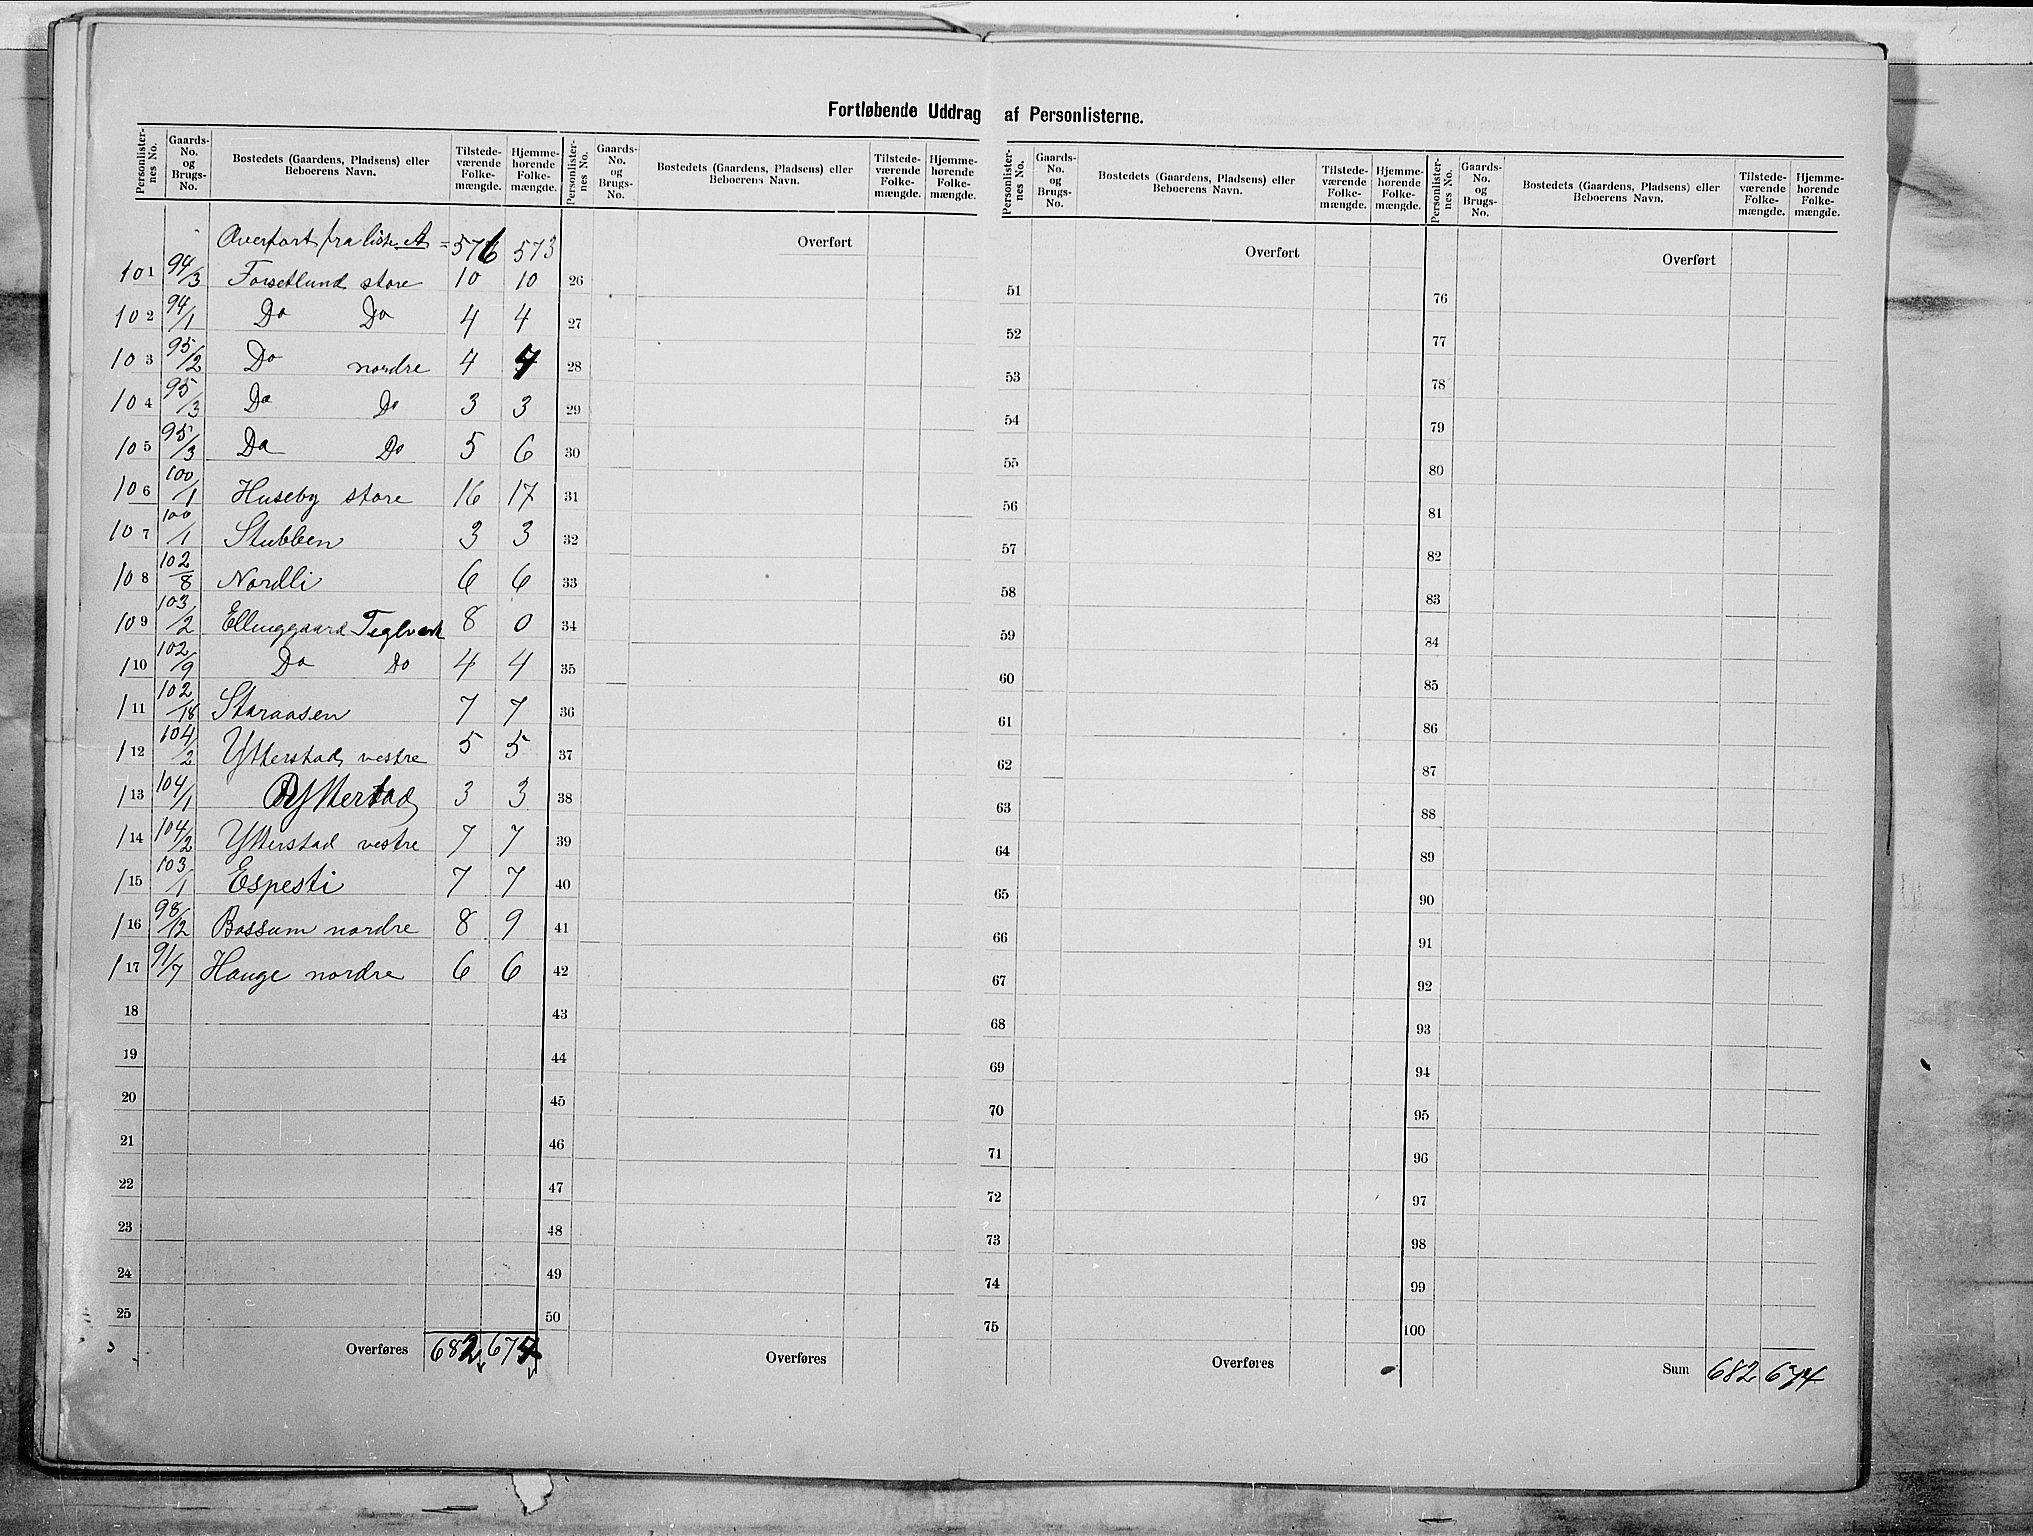 Fortløbende Uddrag af Personlisterne.
Personlister-nes No. | Gaards-No. og Brugs-No. | Bostedets (Gaardens, Pladsens) eller Beboerens Navn. | Tilstede-værende Folke-mængde. | Hjemme-hørende Folke-mængde.
Overført fra liste A = 576 573
101 94/3 Forsetlund store 10 10
102 94/1 Do Do 4 4
103 95/2 Do nordre 4 4
104 95/3 Do Do 3 3
105 95/3 Do Do 5 6
106 100/1 Huseby store 16 17
107 100/1 Stubben 3 3
108 102/8 Nordli 6 6
109 103/2 Ellinggaard Teglverk 8 0
110 102/9 Do Do 4 4
111 102/18 Staraasen 7 7
112 104/2 Ytterstad vestre 5 5
113 104/1 Ytterstad 3 3
114 104/2 Ytterstad vestre 7 7
115 103/1 Espesti 7 7
116 98/12 Bossum nordre 8 9
117 91/7 Hauge nordre 6 6
18
19
20
21
22
23
24
25
Overføres 682 674
Personlister-nes No. | Gaards-No. og Brugs-No. | Bostedets (Gaardens, Pladsens) eller Beboerens Navn. | Tilstede-værende Folke-mængde. | Hjemme-hørende Folke-mængde.
Overført
26
27
28
29
30
31
32
33
34
35
36
37
38
39
40
41
42
43
44
45
46
47
48
49
50
Overføres
Personlister-nes No. | Gaards-No. og Brugs-No. | Bostedets (Gaardens, Pladsens) eller Beboerens Navn. | Tilstede-værende Folke-mængde. | Hjemme-hørende Folke-mængde.
Overført
51
52
53
54
55
56
57
58
59
60
61
62
63
64
65
66
67
68
69
70
71
72
73
74
75
Overføres
Personlister-nes No. | Gaards-No. og Brugs-No. | Bostedets (Gaardens, Pladsens) eller Beboerens Navn. | Tilstede-værende Folke-mængde. | Hjemme-hørende Folke-mængde.
Overført
76
77
78
79
80
81
82
83
84
85
86
87
88
89
90
91
92
93
94
95
96
97
98
99
100
Sum 682 674